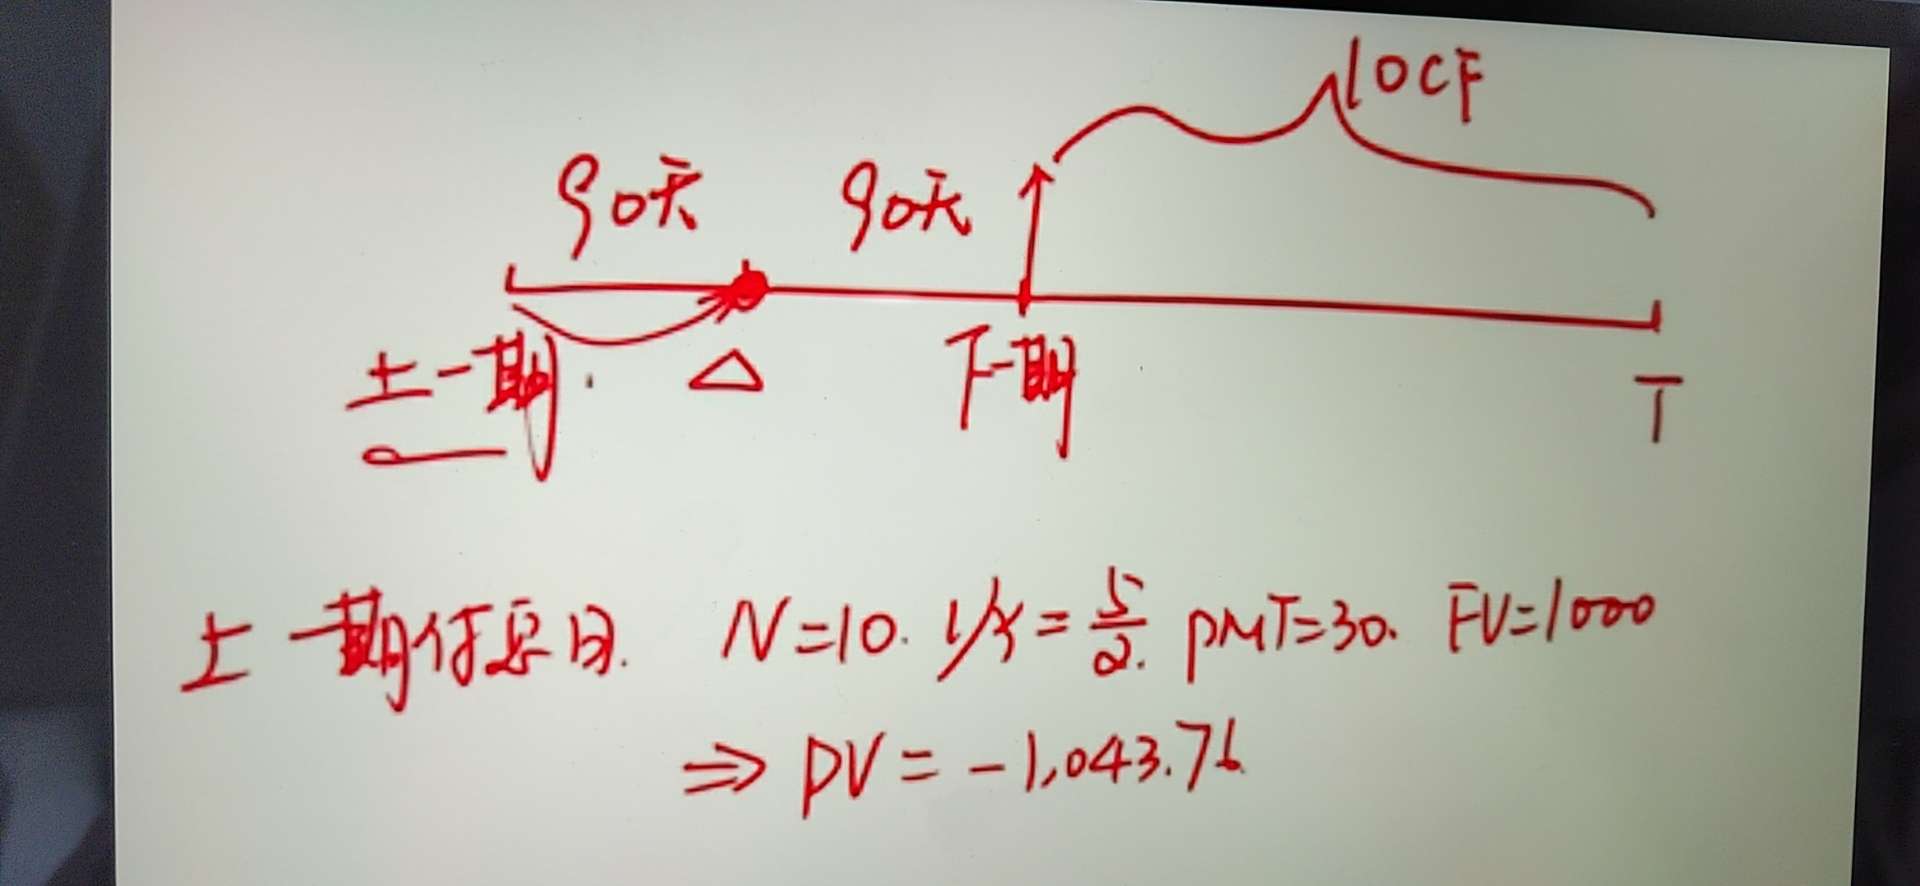 10CF
90天 90天
上一期. △ 下一期 T
上一期付息日. N=10. I/Y=5/2. PMT=30. FV=1000
⇒ PV = -1,043.76